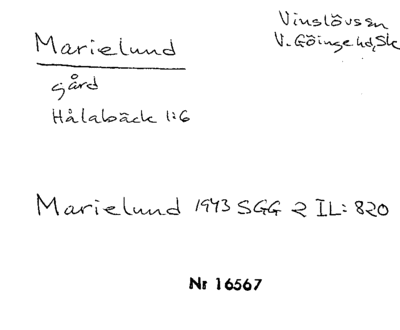 Marielund
Vinslövs sn
V. Göinge hd, Sk
gård
Hålabäck 1:6
Marielund 1943 SGG 2 IL: 820
Nr 16567